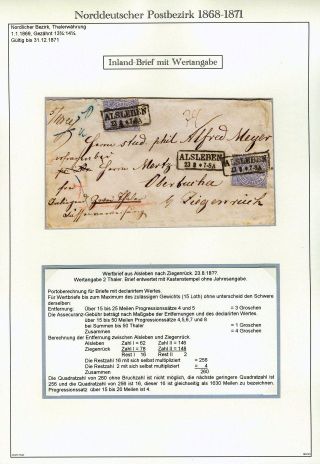 Norddeutscher Postbezirk 1868-1871
Nördlicher Bezirk, Thalerwährung
1.1.1869, Gezähnt 13½:14¼
Gültig bis 31.12.1871
Inland-Brief mit Wertangabe
ALSLEBEN
23 8 ✦ 7-8A
Herrn stud phil Alfred Meyer
ALSLEBEN
23 8 ✦ 7-8A
ALSLEBEN
23 8 ✦ 7-8A
Herrn Mertz
Oberbucha
Ziegenrück
Wertbrief aus Alsleben nach Ziegenrück. 23.8.18??.
Wertangabe 2 Thaler. Brief entwertet mit Kastenstempel ohne Jahresangabe.
Portoberechnung für Briefe mit declarirtem Wertes.
Für Wertbriefe bis zum Maximum des zulässigen Gewichts (15 Loth) ohne unterschied den Schwere
derselben:
Entfernung: Über 15 bis 25 Meilen Progressionssätze 4 und 5 = 3 Groschen
Die Assecuranz-Gebühr beträgt nach Maßgabe der Entfernungen und des declarirten Wertes.
über 15 bis 50 Meilen Progressionssätze 4,5,6,7 und 8
bei Summen bis 50 Thaler = 1 Groschen
Zusammen = 4 Groschen
Berechnung der Entfernung zwischen Alsleben und Ziegenrück.
Alsleben Zahl I = 62 Zahl II = 146
Ziegenrück Zahl I = 78 Zahl II = 148
Rest I 16 Rest II 2
Die Restzahl 16 mit sich selbst multipliziert = 256
Die Restzahl 2 mit sich selbst multipliziert = 4
Zusammen 260
Die Quadratzahl von 260 ohne Bruchzahl ist nicht möglich, die nächste geringere Quadratzahl ist
256 und die Quadratzahl von 256 ist 16, dieser 16 ist gleichzeitig als 1630 Meilen zu bezeichnen.
Progressionssatz über 15 bis 20 Meilen ist 4.